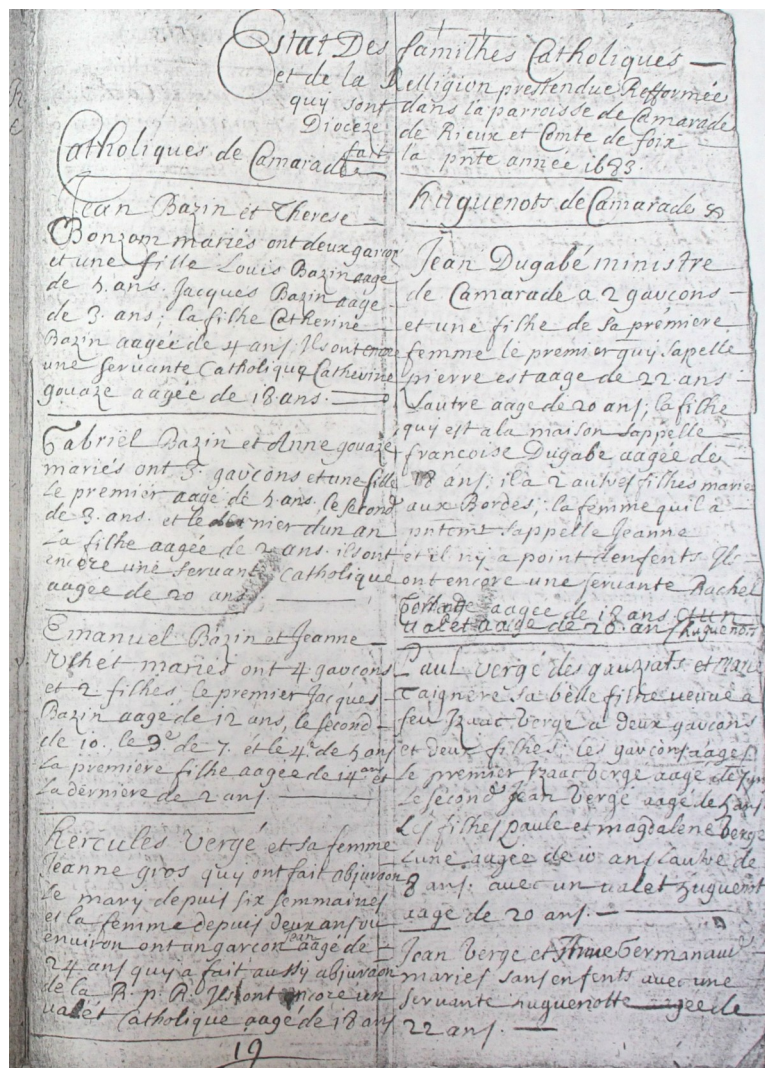 Estat Des familhes Catholiques
et de la Relligion prestendue Refformée
qui sont dans la parroisse de Camarade
Dioceze de Rieux et Comte de foix
fait la pnte année 1683.
Catholiques de Camarade
Jean Bazin et Therese
Bonzom mariés ont deux garçons
et une fille Louis Bazin aagé
de 5 ans. Jacques Bazin aage
de 3. ans; la filhe Catherine
Bazin aagée de 4 ans. Ils ont encore
une servante Catholique Catherine
gouaze aagée de 18 ans.
Gabriel Bazin et Anne gouaze
mariés ont 3. gavcons et une fille
Le premier aagé de 5 ans le second
de 3. ans. et le dernier dun an
La filhe aagée de 2 ans. ils ont
encore une servante Catholique
aagée de 20 ans
Emanuel Bazin et Jeanne
mariés ont 4 gavcons
et 2 filhes, le premier Jacques
Bazin aagé de 12 ans, le second
de 10. le 3e de 7. et le 4e de 5 ans
La premiere filhe aagée de 14 ans et
La derniere de 2 ans.
hercules Vergé et sa femme
Jeanne gros quy ont fait abjuraon
Le mary depuis six semmaines
et la femme depuis deux ans ou
environ ont un garcon jean aagé de
24 ans quy a fait aussy abjuraon
de la R. p. R. Ils ont encore un
valet Catholique aagé de 18 ans
19
huguenots de Camarade
Jean Dugabé ministre
de Camarade a 2 gavcons
et une filhe de sa premiere
femme le premier quy sapelle
pierre est aage de 22 ans
Lautre aage de 20 ans; la filhe
quy est a la maison sappelle
francoise Dugabe aagée de
18 ans; il a 2 autres filhes mariees
aux Bordes; la femme quil a
pntemt sappelle Jeanne
et il ny a point denfents Ils
ont encore une servante Rachel
aagee de 18 ans et un
valet aage de 20 ans huguenots
Paul Vergé des gauziats et Marie
Taignere sa belle filhe veuve a
feu Izaac Vergé a deux gavcons
et deux filhes; les gavcons aages
Le premier Izaac Vergé aagé de 7 ans
Le second Jean Vergé aagé de 5 ans
Les filhes paule et magdalene Vergé
Lune aagée de 10 ans Lautre de
8 ans. avec un valet huguenot
aage de 20 ans.
Jean Vergé et Anne
mariés sans enfents avec une
servante huguenotte agee de
22 ans.